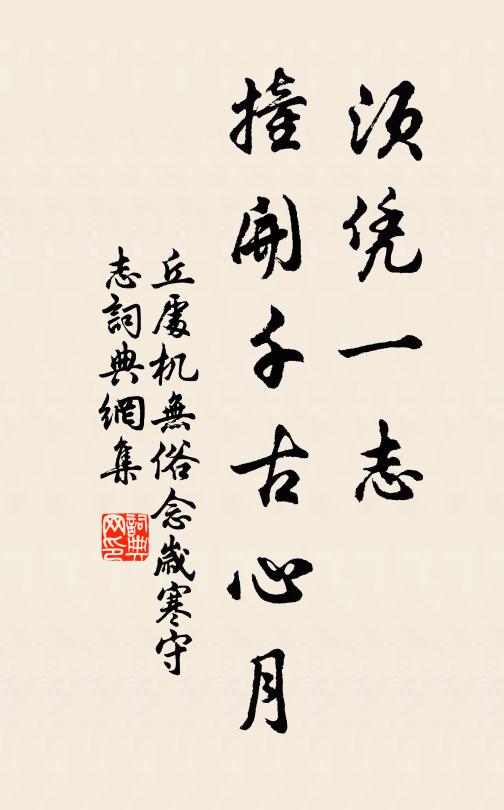 须凭一志
撞開千古心月
丘處机無俗念歲寒守
志詞典網集
詞典
网印